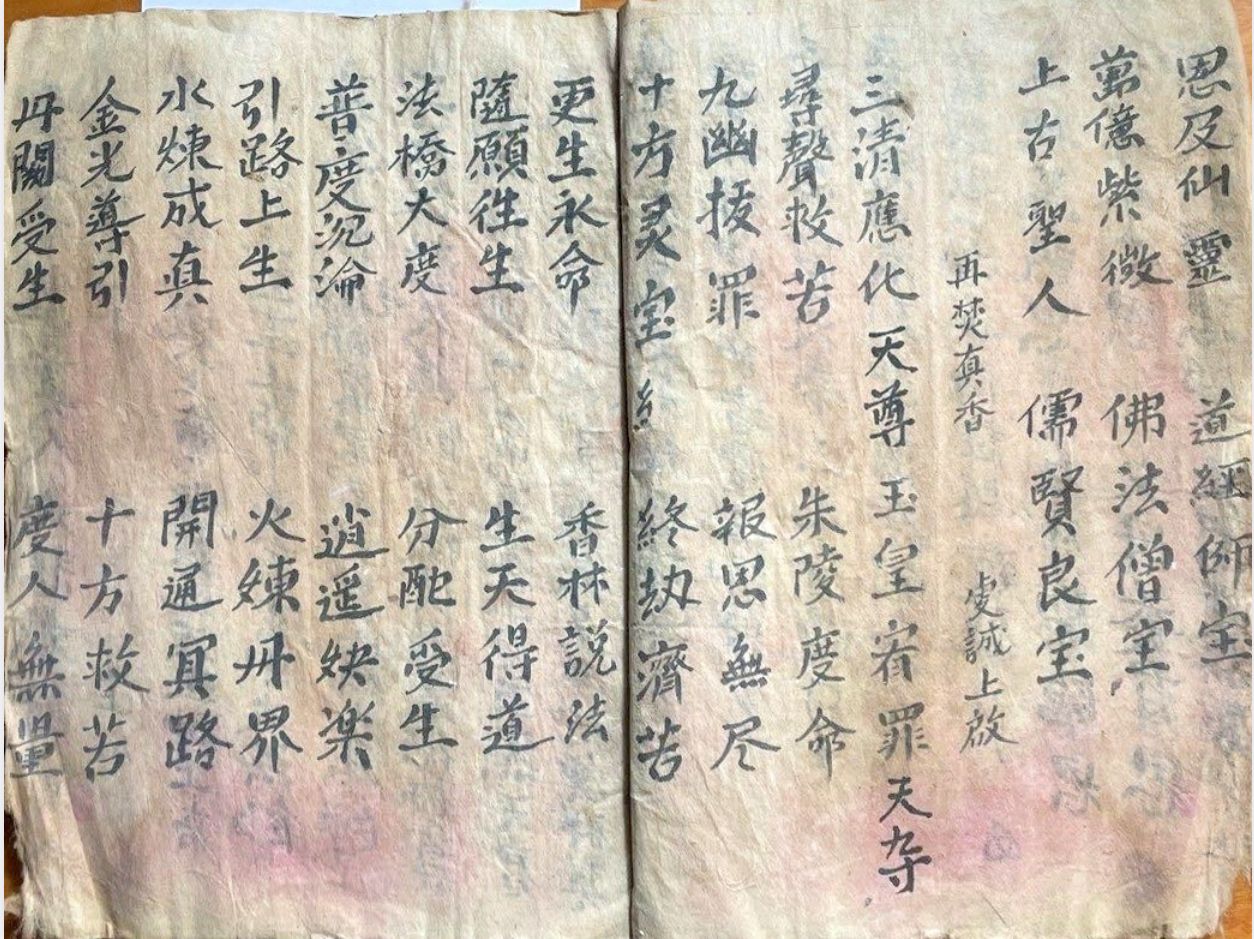 恩及仙靈 道經師宝
萬億紫微 佛法僧宝
上古聖人 儒賢良宝
再焚真香 虔誠上啟
三清應化天尊 玉皇宥罪天尊
尋聲救苦 朱陵度命
九幽拔罪 報恩無尽
十方灵宝 終劫濟苦
更生永命 香林説法
隨願徃生 生天得道
法橋大度 分配受生
普度沉淪 逍遥快楽
引路上生 火煉丹界
水煉成真 開通冥路
金光導引 十方救苦
丹闕受生 度人無量